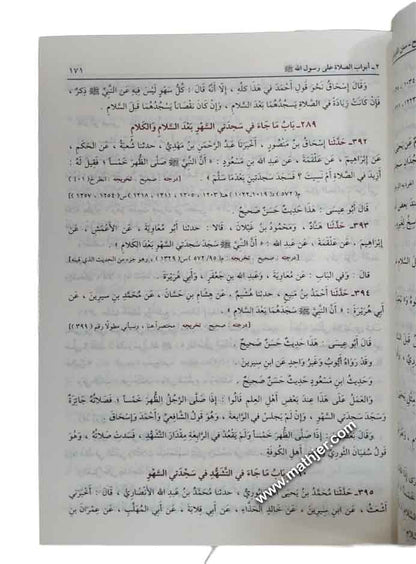 ٢ـ أبواب الصلاة على رسول الله ﷺ
١٧١
وَقَالَ إِسْحَاقُ نَحْوَ قَوْلِ أَحْمَدَ فِي هَذَا كُلِّهِ ، إِلَّا أَنَّهُ قَالَ : كُلُّ سَهْوٍ لَيْسَ فِيهِ عَنِ النَّبِيِّ ﷺ ذِكْرٌ ،
فَإِنْ كَانَتْ زِيَادَةً فِي الصَّلَاةِ يَسْجُدُهُمَا بَعْدَ السَّلَامِ ، وَإِنْ كَانَ نُقْصَانًا يَسْجُدُهُمَا قَبْلَ السَّلَامِ .
٢٨٩ـ بَابُ مَا جَاءَ فِي سَجْدَتَيِ السَّهْوِ بَعْدَ السَّلَامِ وَالكَلَامِ
٣٩٢ـ حَدَّثَنَا إِسْحَاقُ بْنُ مَنْصُورٍ ، أَخْبَرَنَا عَبْدُ الرَّحْمَنِ بْنُ مَهْدِيٍّ ، حدثنا شُعْبَةُ ، عَنِ الحَكَمِ ،
عَنْ إِبْرَاهِيمَ ، عَنْ عَلْقَمَةَ ، عَنْ عبد الله بْنِ مَسْعُودٍ : « أَنَّ النَّبِيَّ ﷺ صَلَّى الظُّهْرَ خَمْسًا » فَقِيلَ لَهُ :
أَزِيدَ فِي الصَّلَاةِ أَمْ نَسِيتَ ؟ فَسَجَدَ سَجْدَتَيْنِ بَعْدَمَا سَلَّمَ » .
[درجته : صحيح . تخريجه :
قَالَ أَبُو عِيسَى : هَذَا حَدِيثٌ حَسَنٌ صَحِيحٌ .
٣٩٣ـ حَدَّثَنَا هَنَّادٌ ، وَمَحْمُودُ بْنُ غَيْلَانَ ، قَالَا : حدثنا أَبُو مُعَاوِيَةَ ، عَنِ الأَعْمَشِ ، عَنْ
إِبْرَاهِيمَ ، عَنْ عَلْقَمَةَ ، عَنْ عَبد الله : « أَنَّ النَّبِيَّ ﷺ سَجَدَ سَجْدَتَيِ السَّهْوِ بَعْدَ الكَلَامِ » .
[درجته : صحيح . تخريجه : وهو جزء من الحديث الذي قبله]
قَالَ : وَفِي البَاب : عَنْ مُعَاوِيَةَ ، وَعَبْدِ الله بْنِ جَعْفَرٍ ، وَأَبِي هُرَيْرَةَ .
٣٩٤ـ حَدَّثَنَا أَحْمَدُ بْنُ مَنِيعٍ ، حدثنا هُشَيْمٌ ، عَنْ هِشَامِ بْنِ حَسَّانَ ، عَنْ مُحَمَّدِ بْنِ سِيرِينَ ، عَنْ
أَبِي هُرَيْرَةَ : « أَنَّ النَّبِيَّ ﷺ
[درجته : صحيح . تخريجه : مختصراً هنا ، وسيأتي مطولاً رقم (٣٩٩)]
قَالَ أَبُو عِيسَى : هَذَا حَدِيثٌ حَسَنٌ صَحِيحٌ .
وقَدْ رَوَاهُ أَيُّوبُ وَغَيْرُ وَاحِدٍ عَنِ ابْنِ سِيرِينَ .
وَحَدِيثُ ابْنِ مَسْعُودٍ حَدِيثٌ حَسَنٌ صَحِيحٌ .
وَالعَمَلُ عَلَى هَذَا عِنْدَ بَعْضِ أَهْلِ العِلْمِ قَالُوا : إِذَا صَلَّى الرَّجُلُ الظُّهْرَ خَمْسًا ، فَصَلَاتُهُ جَائِزَةٌ
وَسَجَدَ سَجْدَتَيِ السَّهْوِ ، وَإِنْ لَمْ يَجْلِسْ فِي الرَّابِعَةِ ، وَهُوَ قَوْلُ الشَّافِعِيِّ وَأَحْمَدَ وَإِسْحَاقَ .
وقَالَ بَعْضُهُمْ : إِذَا صَلَّى الظُّهْرَ خَمْسًا وَلَمْ يَقْعُدْ فِي الرَّابِعَةِ مِقْدَارَ التَّشَهُّدِ ، فَسَدَتْ صَلَاتُهُ ، وَهُوَ
قَوْلُ سُفْيَانَ الثَّوْرِيِّ أَهْلِ الكُوفَةِ .
بَابُ مَا جَاءَ فِي التَّشَهُّدِ فِي سَجْدَتَيِ السَّهْوِ
٣٩٥ـ حَدَّثَنَا مُحَمَّدُ بْنُ يَحْيَى ، حدثنا مُحَمَّدُ بْنُ عبد الله الأَنْصَارِيُّ ، قَالَ : أَخْبَرَنِي
أَشْعَثُ ، عَنِ ابْنِ سِيرِينَ ، عَنْ خَالِدٍ الحَذَّاءِ ، عَنْ أَبِي قِلَابَةَ ، عَنْ أَبِي المُهَلَّبِ ، عَنْ عِمْرَانَ بْنِ
www.mathjer.com